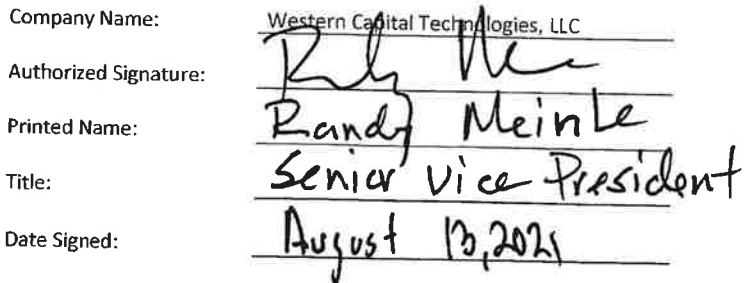 Company Name: Western Capital Technologies, LLC
Authorized Signature:
Printed Name: Randy Meinke
Title: Senior Vice President
Date Signed: August 13, 2021